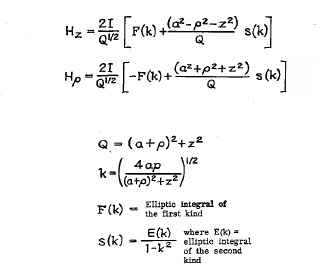 H_z = 2I/Q^{1/2} [F(k) + (a²-ρ²-z²)/Q s(k)]
H_ρ = 2I/Q^{1/2} [-F(k) + (a²+ρ²+z²)/Q s(k)]
Q = (a+ρ)²+z²
k = (4aρ/((a+ρ)²+z²))^{1/2}
F(k) = Elliptic integral of
the first kind
S(k) = E(k)/(1-k²) where E(k) =
elliptic integral
of the second
kind